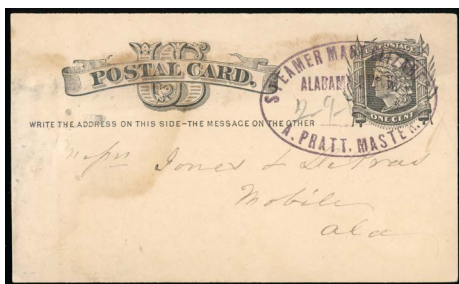 US
POSTAL CARD,
WRITE THE ADDRESS ON THIS SIDE-THE MESSAGE ON THE OTHER
STEAMER MARY
ALABAM
A. PRATT. MASTER.
U.S. POSTAGE
ONE CENT
Jones &
Mobile
Ala